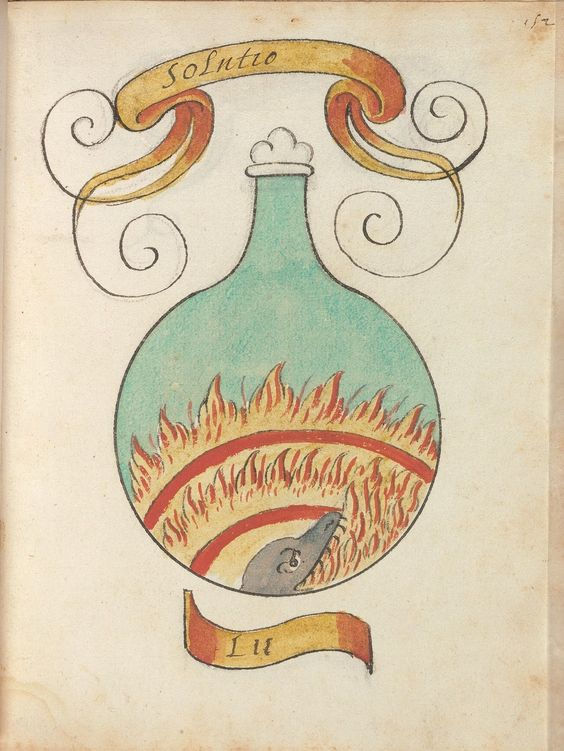 152
Solutio
LII